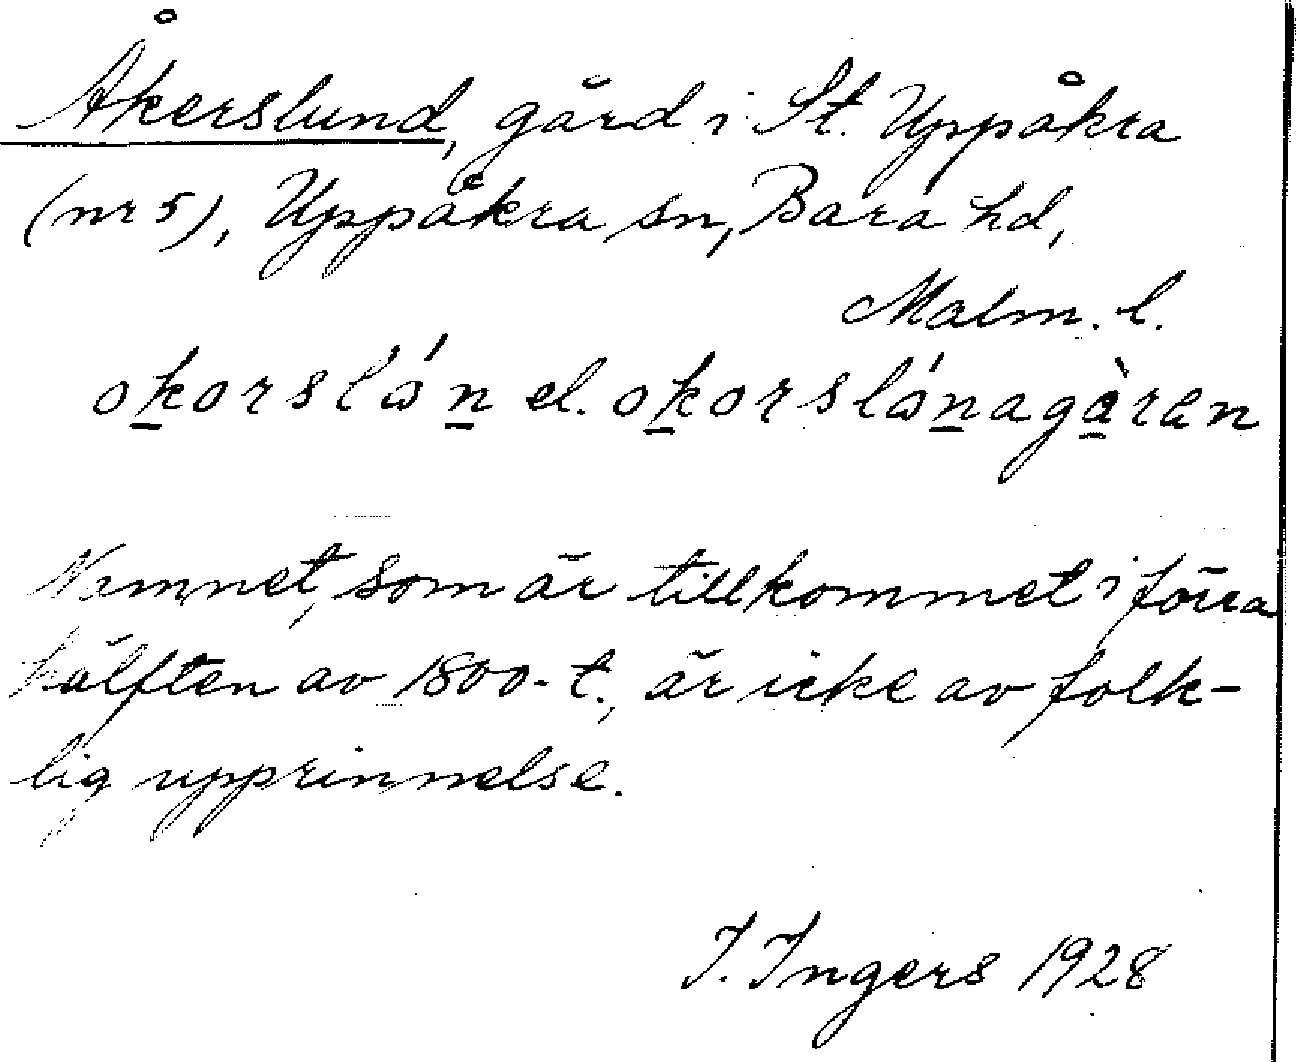 Åkerslund, gård i St. Uppåkra
(nr 5), Uppåkra sn, Bara hd,
Malm. l.
okorslån el. okorslånagàren
Namnet, som är tillkommet i förra
hälften av 1800-t., är icke av folk-
lig upprinnelse.
I. Ingers 1928